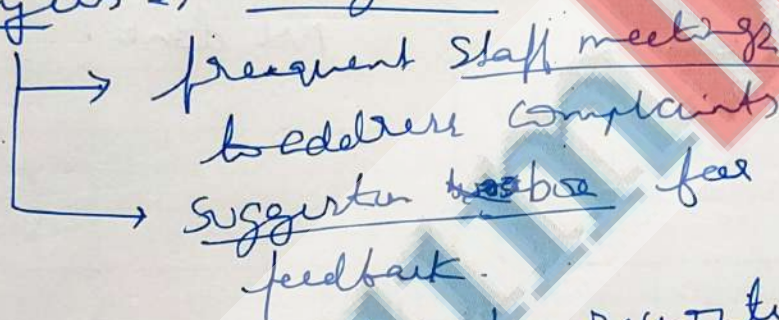 → frequent staff meetings
to address complaints
→ suggestion box for
feedback.